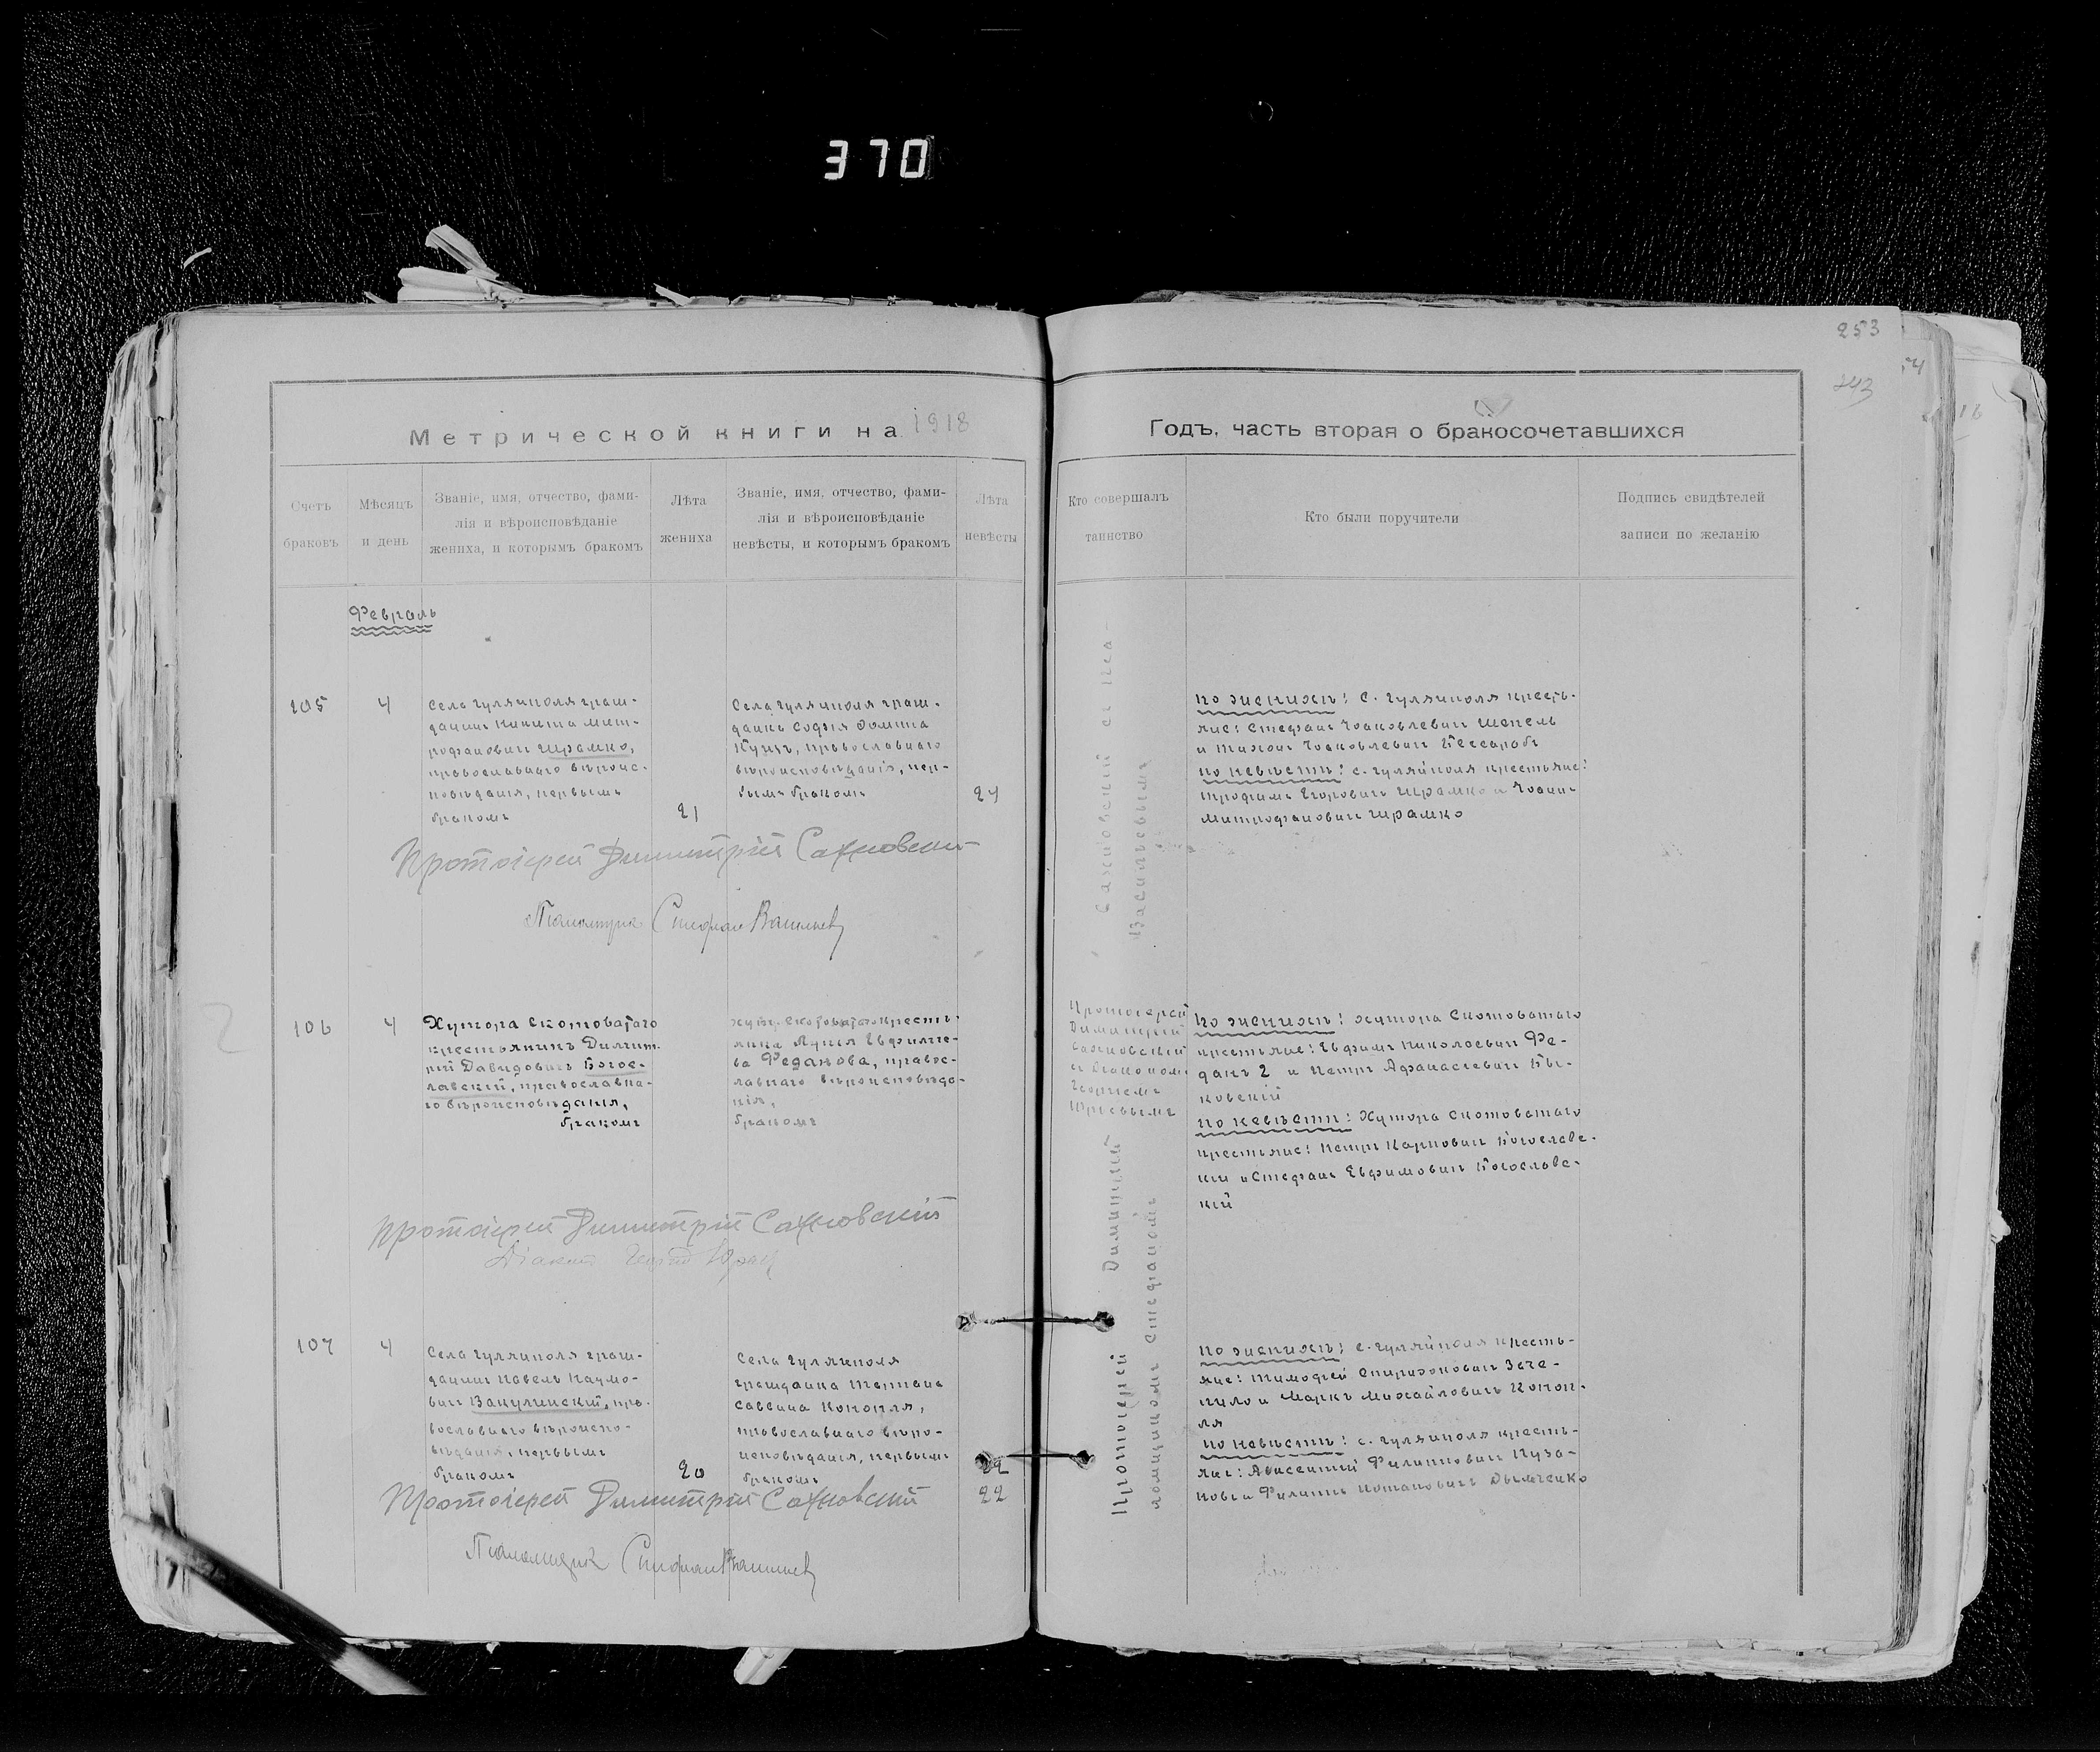 370
253
243
Метрической книги на 1918
Годъ, часть вторая о бракосочетавшихся
Счетъ
браковъ
Мѣсяцъ
и день
Званіе, имя, отчество, фами-
лія и вѣроисповѣданіе
жениха, и которымъ бракомъ
Лѣта
жениха
Званіе, имя, отчество, фами-
лія и вѣроисповѣданіе
невѣсты, и которымъ бракомъ
Лѣта
невѣсты
Кто совершалъ
таинство
Кто были поручители
Подпись свидѣтелей
записи по желанію
Февраль
105
4
Села Гуляйполя граж-
данинъ Никита Мит-
рофановичъ Шрамко,
православнаго вѣроис-
повѣданія, первымъ
бракомъ
21
Села Гуляйполя граж-
данк София
православнаго
вѣроисповѣданія, пер-
вымъ бракомъ
24
по женихѣ: с. Гуляйполя кресть-
яне: Стефанъ Іоаковлевичъ Шепель
и Тихонъ Іоаковлевичъ Бессарабъ
по невѣстѣ: с. Гуляйполя крестьяне:
Трофимъ Егоровичъ Шрамко и Іоаннъ
Митрофановичъ Шрамко
Протоіерей Димитрій Сахновскій
Псаломщикъ Стефанъ Васильев
106
4
Хутора Скотоватаго
крестьянинъ Димит-
рій Давидовичъ Богос-
лавскій, православна-
го вѣроисповѣданія,
бракомъ
хут. Скотоватаго крестья-
нка Евфиміе-
ва Феданова, правос-
лавнаго вѣроисповѣда-
нія,
бракомъ
Протоіерей
Димитрій
Сахновскій
съ Діакономъ
Георгіемъ
Юрьевымъ
по женихѣ: хутора Скотоватаго
крестьяне: Евфимъ Николаевичъ Фе-
данъ 2 и Петръ Афанасіевичъ Бы-
ковскій
по невѣстѣ: Хутора Скотоватаго
крестьяне: Петръ Карповичъ Богославс-
кій и Стефанъ Евфимовичъ Богославс-
кій
Протоіерей Димитрій Сахновскій
Діаконъ
107
4
Села Гуляйполя граж-
данинъ Павелъ Наумо-
вичъ Вакулинскій, пра-
вославнаго вѣроиспо-
вѣданія, первымъ
бракомъ
20
Села Гуляйполя
гражданка Татіана
Саввина Конопля,
православнаго вѣро-
исповѣданія, первымъ
бракомъ
22
22
по женихѣ: с. Гуляйполя кресть-
яне: Тимофей Спиридоновичъ Заче-
пило и Маркъ Михайловичъ Коноп-
ля
по невѣстѣ: с. Гуляйполя кресть-
яне: Авксентій Филипповичъ Пуза-
новъ и Филиппъ Потаповичъ Дымченко
Протоіерей Димитрій Сахновскій
Псаломщикъ Стефанъ Васильев
Протоіерей Димитрій Сахновскій съ пса
ломщикомъ Стефаномъ Васильевымъ